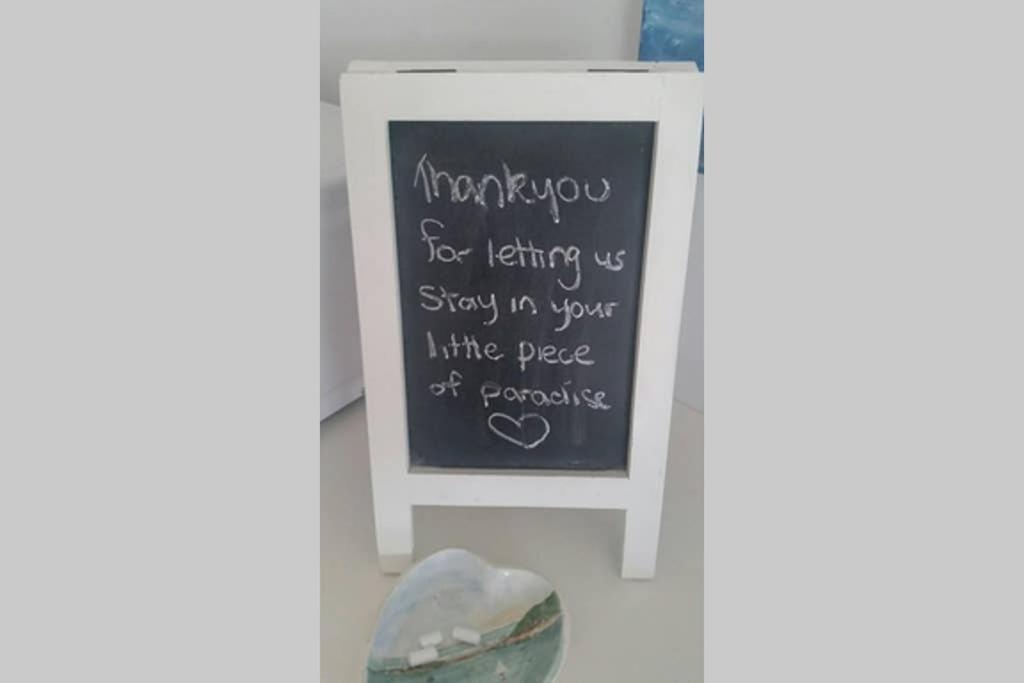 Thankyou
for letting us
Stay in your
little piece
of paradise